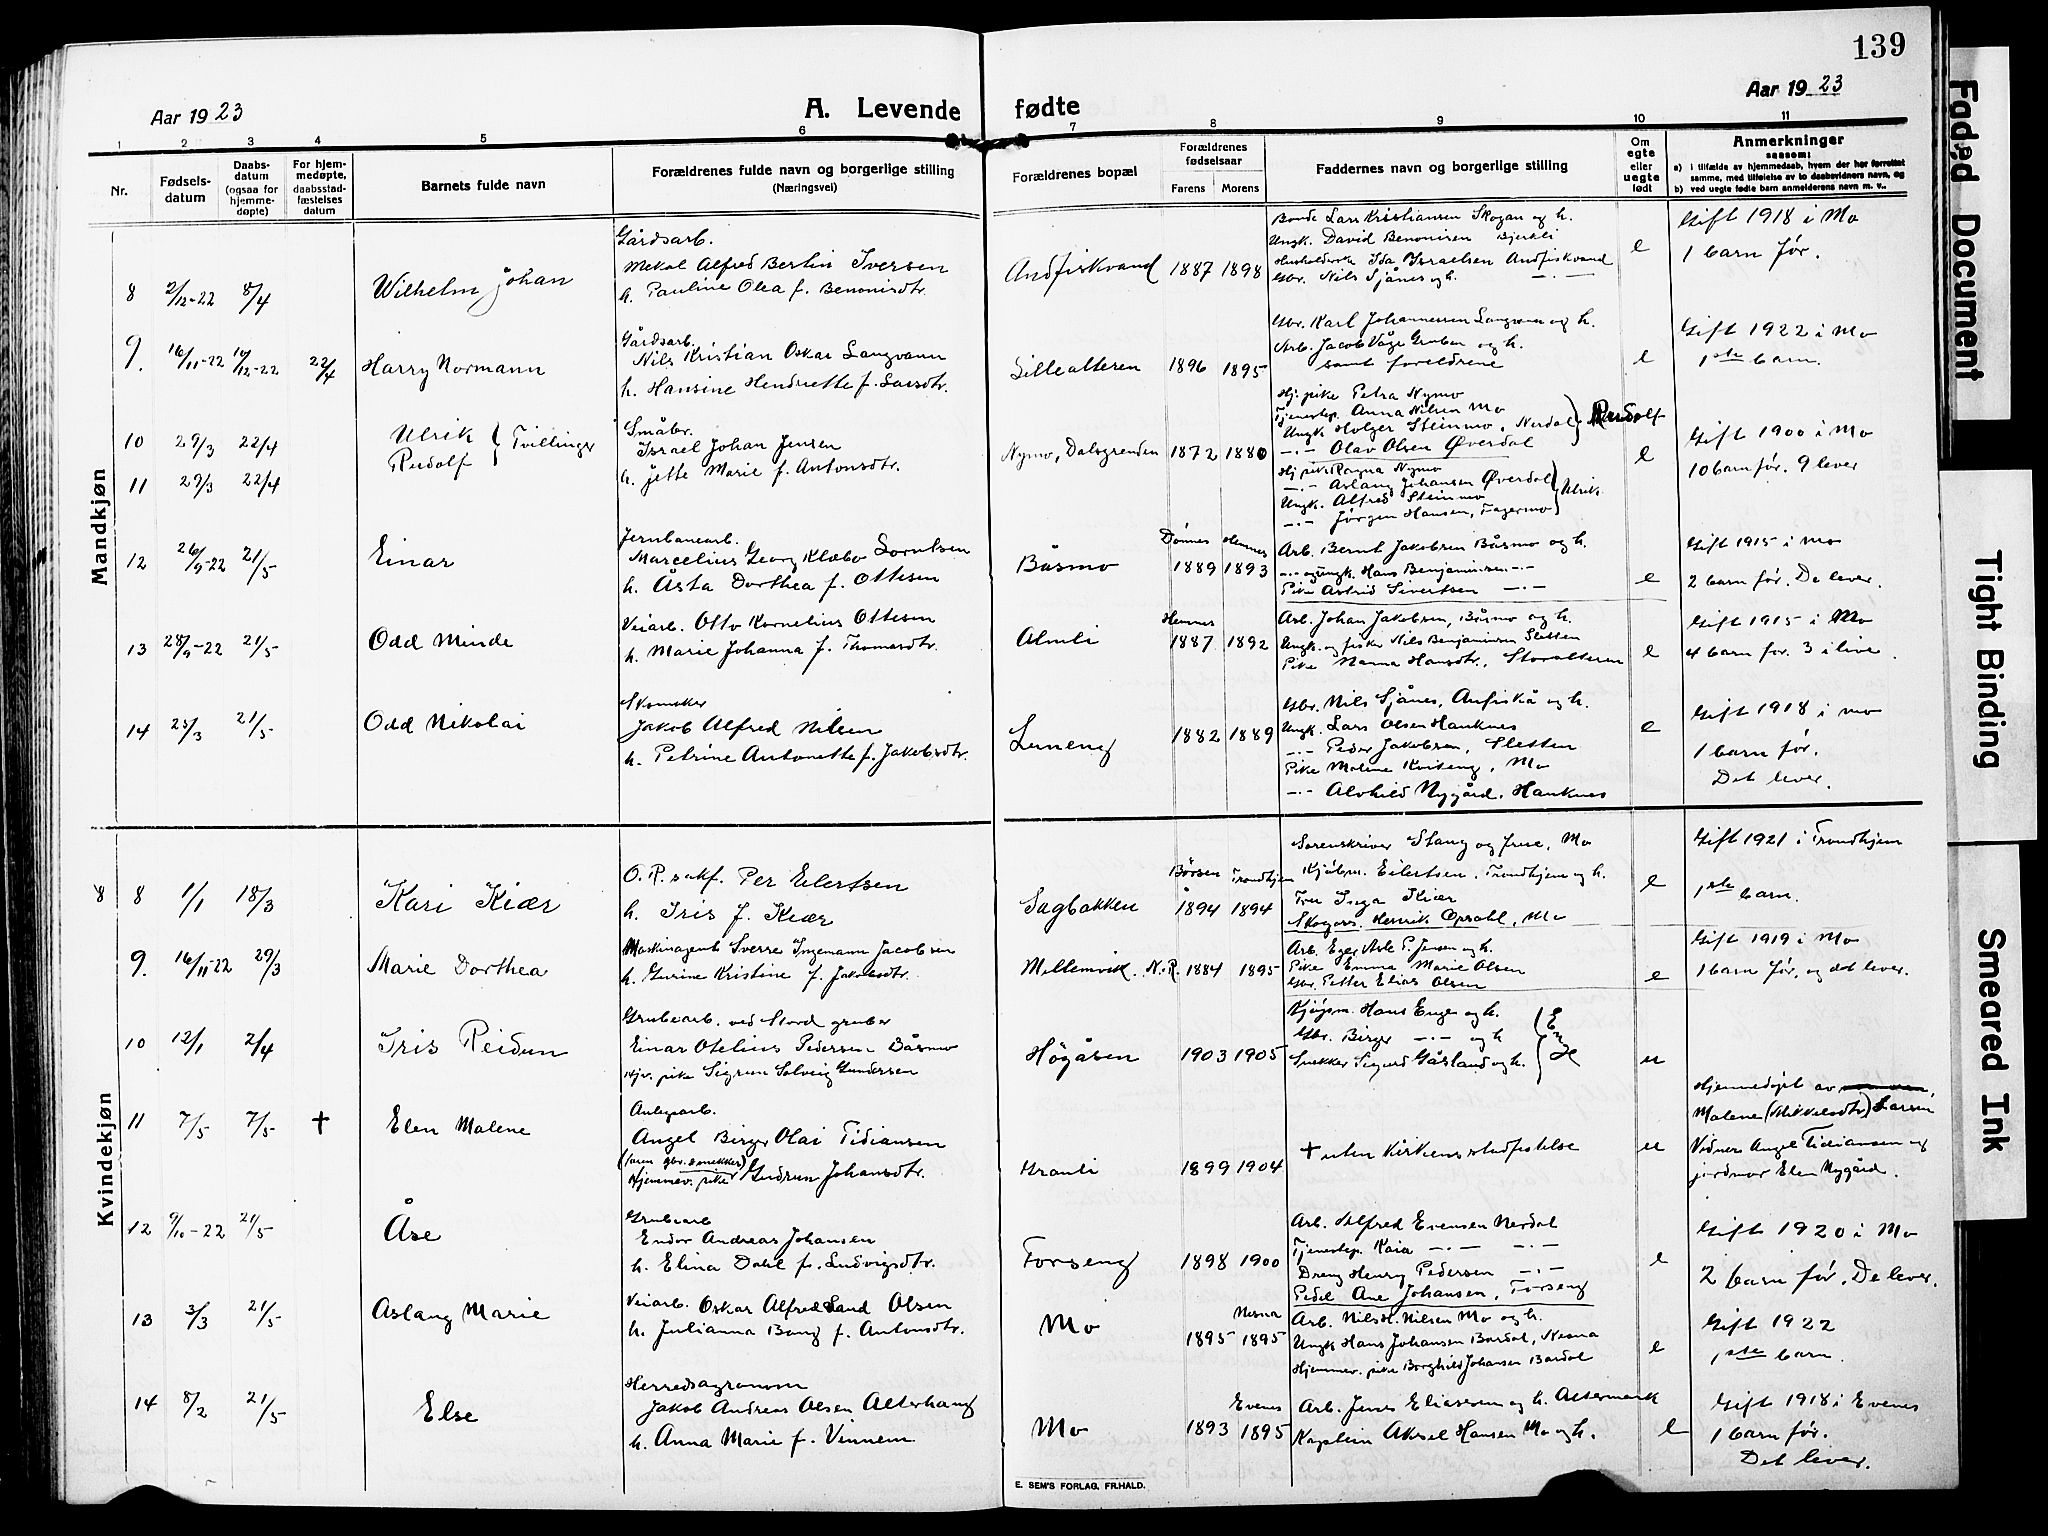 139
Aar 1923
A. Levende fødte
Aar 1923
1 2 3 4 5 6 7 8 9 10 11
Nr.
Fødsels-
datum
Daabs-
datum
(ogsaa for
hjemme-
døpte)
For hjem-
medøpte,
daabsstad-
fæstelses
datum
Barnets fulde navn
Forældrenes fulde navn og borgerlige stilling
(Næringsvei)
Forældrenes bopæl
Forældrenes
fødselsaar
Farens Morens
Faddernes navn og borgerlige stilling
Om
egte
eller
uegte
født
Anmerkninger
saasom:
a) i tilfælde av hjemmedaab, hvem der har forrettet
samme, med tilføielse av to daabsvidners navn, og
b) ved uegte fødte barn anmelderens navn m. v..
Mandkjøn
8 2/12-22 8/4 Wilhelm Johan
Gårdsarb.
Mekal Alfred Berlin Iversen
h. Pauline Olea f. Benonisdtr.
Andfiskvand 1887 1898
Bonde Lars Kristiansen Skogan og h.
Ungk. David Benonisen Bjerkli
Husholderske Ida Israelsen Andfiskvand
Gbr. Nils Sjånes og h. -·-
e
Gift 1918 i Mo
1 barn før.
9. 16/11-22 10/12-22 22/4 Harry Normann
Gårdsarb.
Nils Kristian Oskar Langvann
h. Hansine Hendriette f. Larsdtr.
Lillealteren 1896 1895
Gbr. Karl Johannessen Langvann og h.
Arb. Jacob Våge Gruben og h.
samt foreldrene
e
Gift 1922 i Mo
1ste barn.
10 29/3 22/4 Ulrik
11 29/3 22/4 Rudolf } Tvillinger
Småbr.
Israel Johan Jensen
h. Jette Marie f. Antonsdtr.
Nymo, Dalsgrenden 1872 1880
Hj. pike Petra Nymo
Tjenestep. Anna Nilsen Mo
Ungk Holger Steinmo, Nerdal
-·- Olav Olsen Øverdal
} Rudolf
Hj. pike Ragna Nymo
-·- Aslaug Johansen Øverdal
Ungk. Alfred Steinmo
-·- Jørgen Hansen, Fagermo
} Ulrik
e
Gift 1900 i Mo
10 barn før. 9 lever
12 26/9-22 21/5 Einar
Jernbanearb.
Marcelius Georg Klæbo Lorntsen
h. Åsta Dorthea f. Ottesen
Båsmo
Dønnes Hemnes
1889 1893
Arb. Bernt Jakobsen Båsmo og h.
-·- og ungk. Hans Benjaminsen -·-
Pike Astrid Sivertsen -·-
e
Gift 1915 i Mo
2 barn før. De lever.
13 28/9-22 21/5 Odd Minde
Veiarb. Otto Kornelius Ottesen
h. Marie Johanna f. Thomasdtr.
Almli
Hemnes
1887 1892
Arb. Johan Jakobsen, Båsmo og h.
Ungk. og fisker Nils Benjaminsen Sletten
Pike Nanna Hansdtr., Storalteren
e
Gift 1915 i Mo
4 barn før. 3 i live.
14 25/3 21/5 Odd Nikolai
Skomaker
Jakob Alfred Nilsen
h. Petrine Antonette f. Jakobsdtr.
Luneng 1882 1889
Gbr. Nils Sjånes, Anfiskå og h.
Ungk. Lars Olsen Hauknes
-·- Peder Jakobsen, Sletten
Pike Maline Kviteng, Mo
-·- Alvhild Nygård, Hauknes
e
Gift 1918 i Mo
1 barn før.
Det lever.
Kvindekjøn
8 8 1/1 18/3 Kari Kiær
O.R. sakf. Per Eilertsen
h. Iris f. Kiær
Sagbakken
Børsen Trondhjem
1894 1894
Sorenskriver Stang og frue, Mo
Kjøbm. Eilertsen, Trondhjem og h.
Fru Inga Kiær
Skogass. Henrik Opsahl, Mo
e
Gift 1921 i Trondhjem
1ste barn.
9. 16/11-22 29/3 Marie Dorthea
Maskinagent Sverre Ingemann Jacobsen
h. Gurine Kristine f. Jakobsdtr.
Mellemvik. N.R. 1884 1895
Pike Emma Marie Olsen
Gbr. Petter Elias Olsen
e
Gift 1919 i Mo
1 barn før, og det lever.
10 12/1 2/4 Iris Reidun
Grubearb. ved Stord gruber
Einar Otelius Pedersen Båsmo
Hjv. pike Sigrun Solveig Gundersen
Høgåsen 1903 1905
Kjøpm. Hans Enge og h.
Gbr. Birger -·- og h
Snekker Sigurd Gåsland og h.
u
11 7/5 7/5 + Elen Malene
Anlegsarb.
Angel Birger Olai Tidiansen
(faren gbr. snekker)
Hjemmev. pike Gudrun Johansdtr.
Kranli 1899 1904
+ uten Kirkens stadfestelse
u
Hjemmedøpt av
Malene (Mikkelsdtr) Larsen
Vidner Angel Tidiansen og
jordmor Elen Nygård.
12 9/10-22 21/5 Åse
Grubearb
Endor Andreas Johansen
h. Elina Dahl f. Ludvigsdtr.
Forseng 1898 1900
Arb. Alfred Evensen Nerdal
Tjenestep. Kaia -·- -·-
Dreng Henry Pedersen -·-
Pedel Ane Johansen, Forseng
e
Gift 1920 i Mo
2 barn før. De lever.
13 3/3 21/5 Aslaug Marie
Veiarb. Oskar Alfred Sand Olsen
h. Julianna Bang f. Antonsdtr.
Mo
Nesna
1895 1895
Arb. Nils H. Nilsen Mo og h.
Ungk Hans Johansen Bardal, Nesna
Hjemmev. pike Borghild Johansen Bardal
e
Gift 1922
1ste barn.
14 8/2 21/5 Else
Herredsagronom
Jakob Andreas Olsen Alterhaug
h. Anna Marie f. Vinnem
Mo
Evenes
1893 1895
Arb. Jens Eliassen og h. Altermark
Kaptein Aksel Hansen Mo og h.
e
Gift 1918 i Evenes
1 barn før.
Det lever.
E. SEM'S FORLAG, FR.HALD.
Faded Document
Tight Binding
Smeared Ink